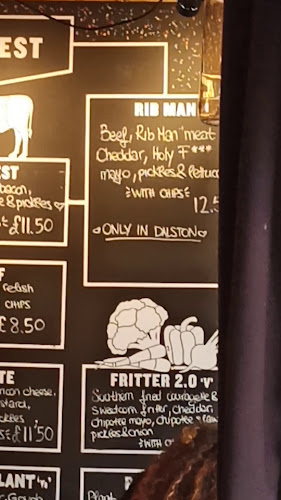 EST
RIB MAN
Beef, Rib Man meat
Cheddar, Holy F***
mayo, pickles &
WITH CHIPS
12.5
ONLY IN DALSTON
EST
bacon,
& pickles
£11.50
relish
CHIPS
£8.50
FRITTER 2.0 'V'
Southern fried courgette &
Sweetcorn fritter, cheddar,
chipotle mayo, chipotle
pickles & onion
WITH
TE
cheese,
£11.50
LANT 'V'
Plant